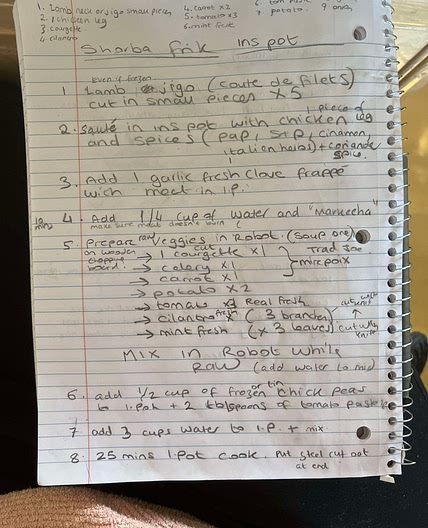 1. Lamb neck or jigo small pieces
2. 1 chicken leg
3. courgette
4. cilantro
4. carrot x2
5. tomato x3
6. mint fresh
7 potato.
9 onion
Shorba frik Ins pot
Even if frozen
1 Lamb or jigo (coute de filets)
cut in small pieces x5
1 piece of
2. Sauté in ins pot with chicken leg
and spices (pap, s+p, cinamen,
italien herbs) + coriander
spice.
3. Add 1 garlic fresh clove frappé
with meet in I.P.
10 mins 4. Add 1/4 cup of water and "Markecha"
make sure meat doesn't burn (
5. Prepare raw veggies in Robot. (Soup one)
on wooden chopping board.
→ 1 courgette cut x1
→ celery x1
→ carrot x1
} Trad Joe mirepoix
→ potato x2
→ tomato x3 Real fresh
→ cilantro fresh (3 branches)
→ mint fresh (x 3 leaves) cut with knife
Mix in Robot while
raw (add water to mix)
6. add 1/2 cup of frozen or tin chick peas
to I.Pot + 2 tblspoons of tomato paste
7 add 3 cups water to I.P. + mix.
8. 25 mins I.Pot cook. Put steel cut oat
at end.